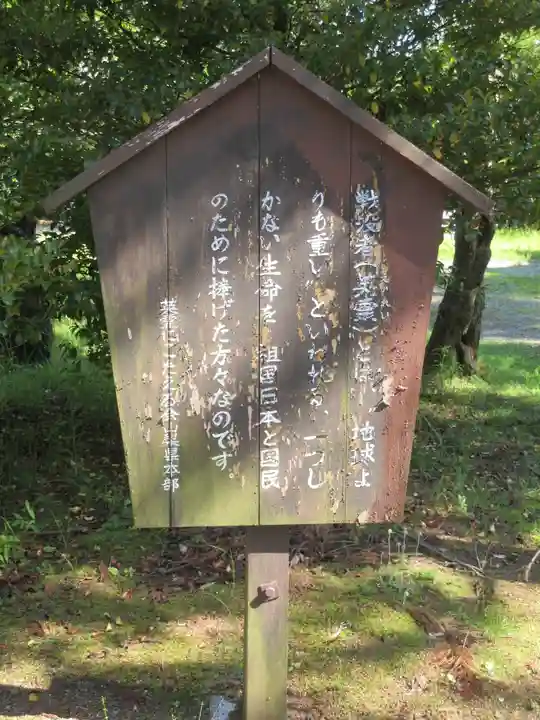 戦没者(英霊)とは、地球よ
りも重い”といわれる、一つし
かない生命を、祖国日本と国民
のために捧げた方々なのです。
英霊にこたえる会山梨県本部